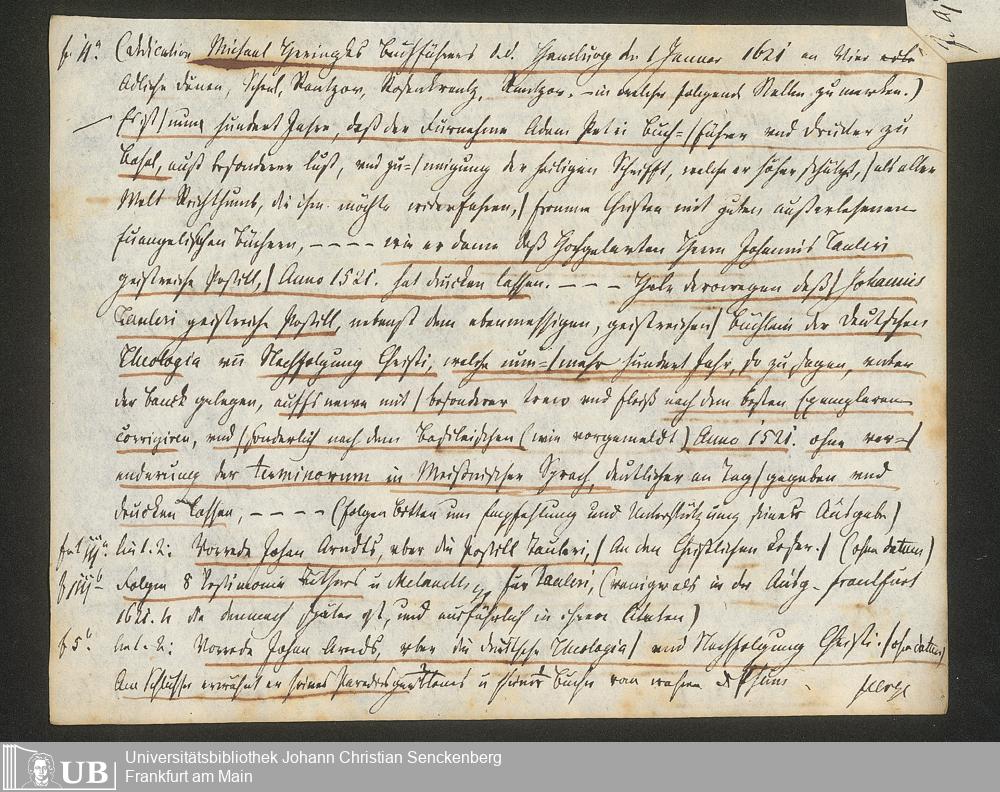 (Dedication Michael Heringks Buchführers d.d. Hamburg den 1 Januar 1621 an Vier
Adliche Damen, Rantzow, Rosenkrantz, Rantzow. – in welcher folgende Stellen zu merken.)
Es ist / nun hundert Jahre, daß der Fürnehme Adam Petri Buch=/führer und Drucker zu
Basel, auß besonderer lust, und zu=/neigung der heiligen Schrifft, welche er höher schätzt, / als aller
Welt Reichthumb, die ihm möchte widerfahren, / fromme Christen mit guten außerlesenen
Euangelischen Büchern, – – – – wie er dann deß Hochgelarten Herrn Johannis Tauleri
geistreiche Postill, / Anno 1521. hat drucken lassen. – – – Habe derowegen deß / Johannis
Tauleri geistreiche Postill, nebenst dem ebenmessigen, geistreichen / Büchlein der Deutschen
Theologia und Nachfolgung Christi, welche nun=/mehr hundert Jahr, so zu sagen, unter
der banck gelegen, auffs newe mit / besonderer trew und fleiß nach dem besten Exemplaren
corrigiren, und / sonderlich nach dem Baslischen (wie vorgemeldt) Anno 1521. ohne ver=/
enderung der terminorum in Meißnischer Sprach, deutlicher an Tag / gegeben und
drucken lassen, – – – – (folgen bitten um Empfehlung und Unterstützung seiner Ausgabe)
lin 1. 2: Vorrede Johan Arndts, uber die Postill Tauleri, / An den Christlichen Leser. / (ohne datum)
Folgen 8 Testimonia Luthers u Melanth. für Tauleri, (weniger als in der Ausg. Frankfurt
1621. 4 die demnach später ist, und ausführlich in ihren Citaten)
f 5. lin 1. 2: Vorrede Johan Arnds, uber die deutsche Theologia / und Nachfolgung Christi: (ohne datum)
Am Schlusse erwähnt er seines Paradisgärtleins u seines Buchs vom wahren
Universitätsbibliothek Johann Christian Senckenberg
UB Frankfurt am Main